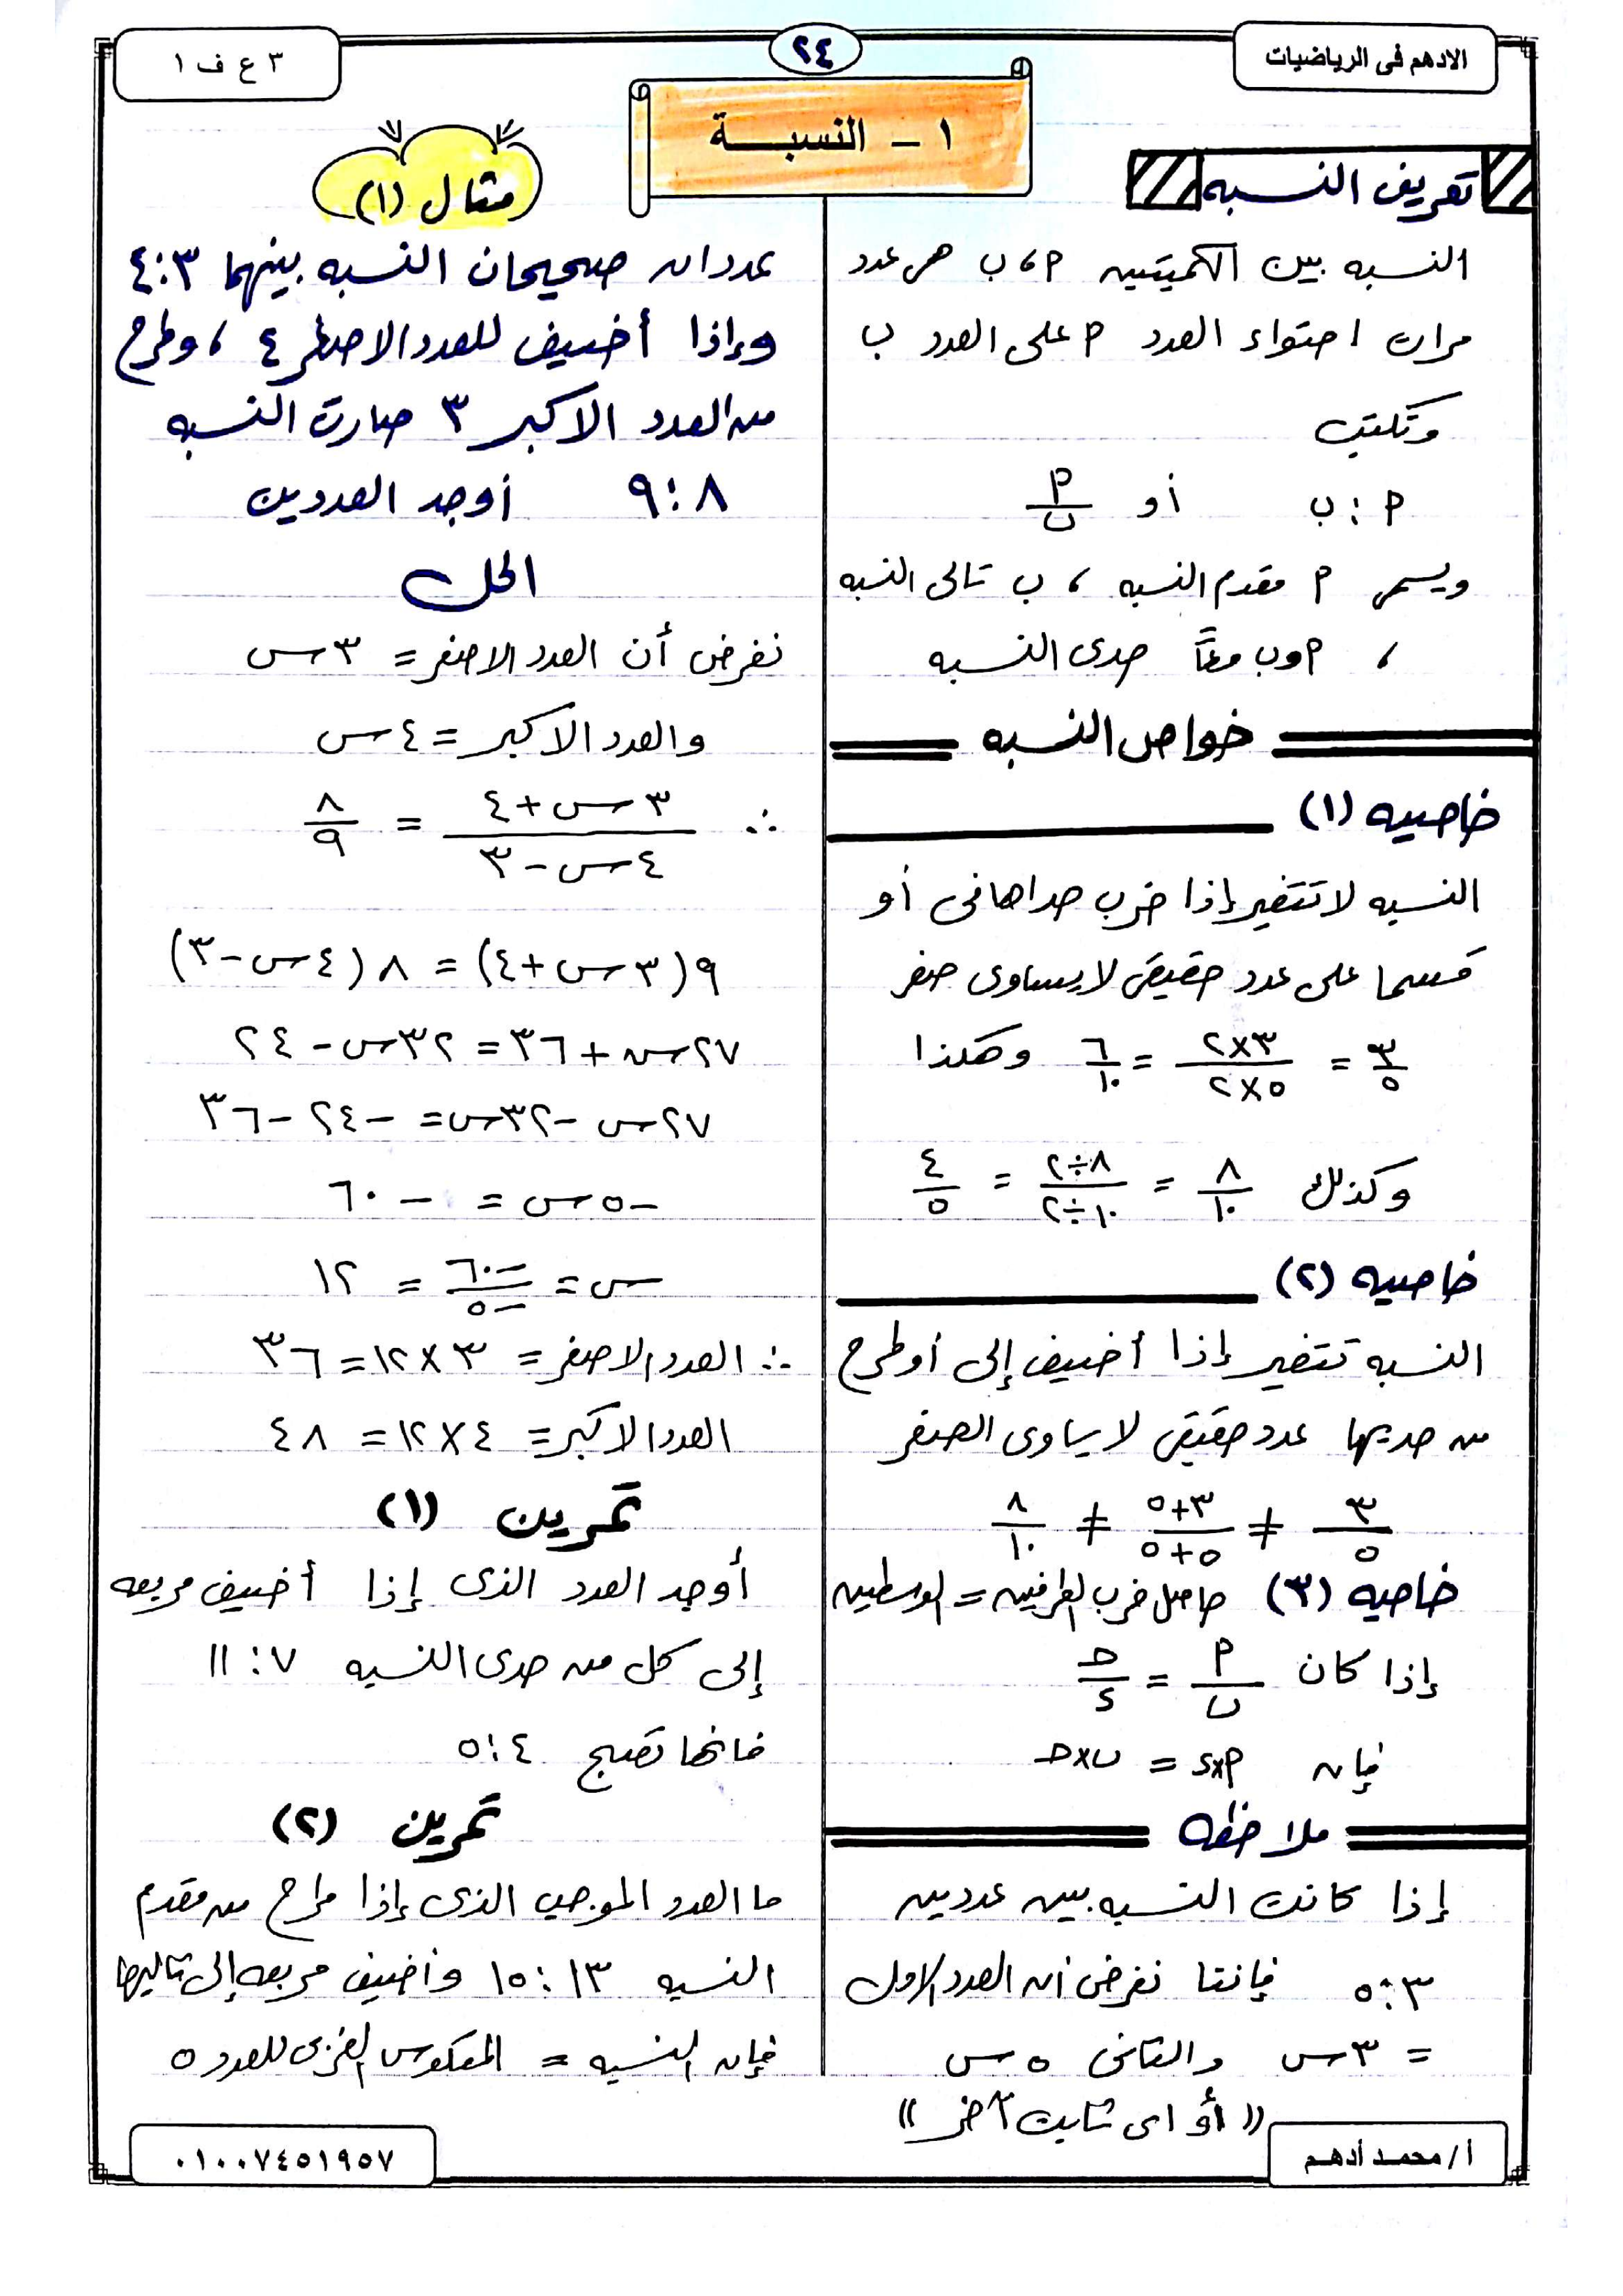 الادهم فى الرياضيات
٢٤
٣ ع ف ١
١ - النسبــة
تعريف النسبه
النسبه بين الكميتين ٩، ب هى عدد
مرات احتواء العدد ٩ على العدد ب
وتكتب
٩ : ب أو ٩/ب
ويسمى ٩ مقدم النسبه ، ب تالى النسبه
، ٩ وب معاً حدى النسبه
خواص النسبه
خاصيه (١)
النسبه لا تتغير إذا ضرب حداها فى أو
قسما على عدد حقيقى لا يساوى صفر
٣/٥ = ٣×٢/٥×٢ = ٦/١٠ وهكذا
وكذلك ٨/١٠ = ٨÷٢/١٠÷٢ = ٤/٥
خاصيه (٢)
النسبه تتغير إذا أضيف إلى أو طرح
من حديها عدد حقيقى لا يساوى الصفر
٣/٥ ≠ ٣+٥/٥+٥ ≠ ٨/١٠
خاصيه (٣) حاصل ضرب الطرفين = الوسطين
إذا كان ٩/ب = ح/د
فإن ٩×د = ب×ح
ملاحظه
إذا كانت النسبه بين عددين
٣:٥ فإننا نفرض أن العدد الاول
= ٣س والثانى ٥س
(( أو اى ثابت آخر ))
مثال (١)
عددان صحيحان النسبه بينهما ٣:٤
وإذا أضيف للعدد الاصغر ٤ ، وطرح
من العدد الاكبر ٣ صارت النسبه
٨:٩ أوجد العددين
الحل
نفرض أن العدد الاصغر = ٣س
والعدد الاكبر = ٤س
∴ ٣س+٤/٤س-٣ = ٨/٩
٩(٣س+٤) = ٨(٤س-٣)
٢٧س+٣٦ = ٣٢س-٢٤
٢٧س-٣٢س = -٢٤-٣٦
-٥س = -٦٠
س = -٦٠/-٥ = ١٢
∴ العدد الاصغر = ٣×١٢ = ٣٦
العدد الاكبر = ٤×١٢ = ٤٨
تمرين (١)
أوجد العدد الذى إذا أضيف مربعه
إلى كل من حدى النسبه ٧:١١
فانها تصبح ٤:٥
تمرين (٢)
ما العدد الموجب الذى إذا طرح من مقدم
النسبه ١٣:١٥ وأضيف مربعه إلى تاليها
فإن النسبه = المعكوس الضربى للعدد ٥
أ/محمـد أدهـم
٠١٠٠٧٤٥١٩٥٧